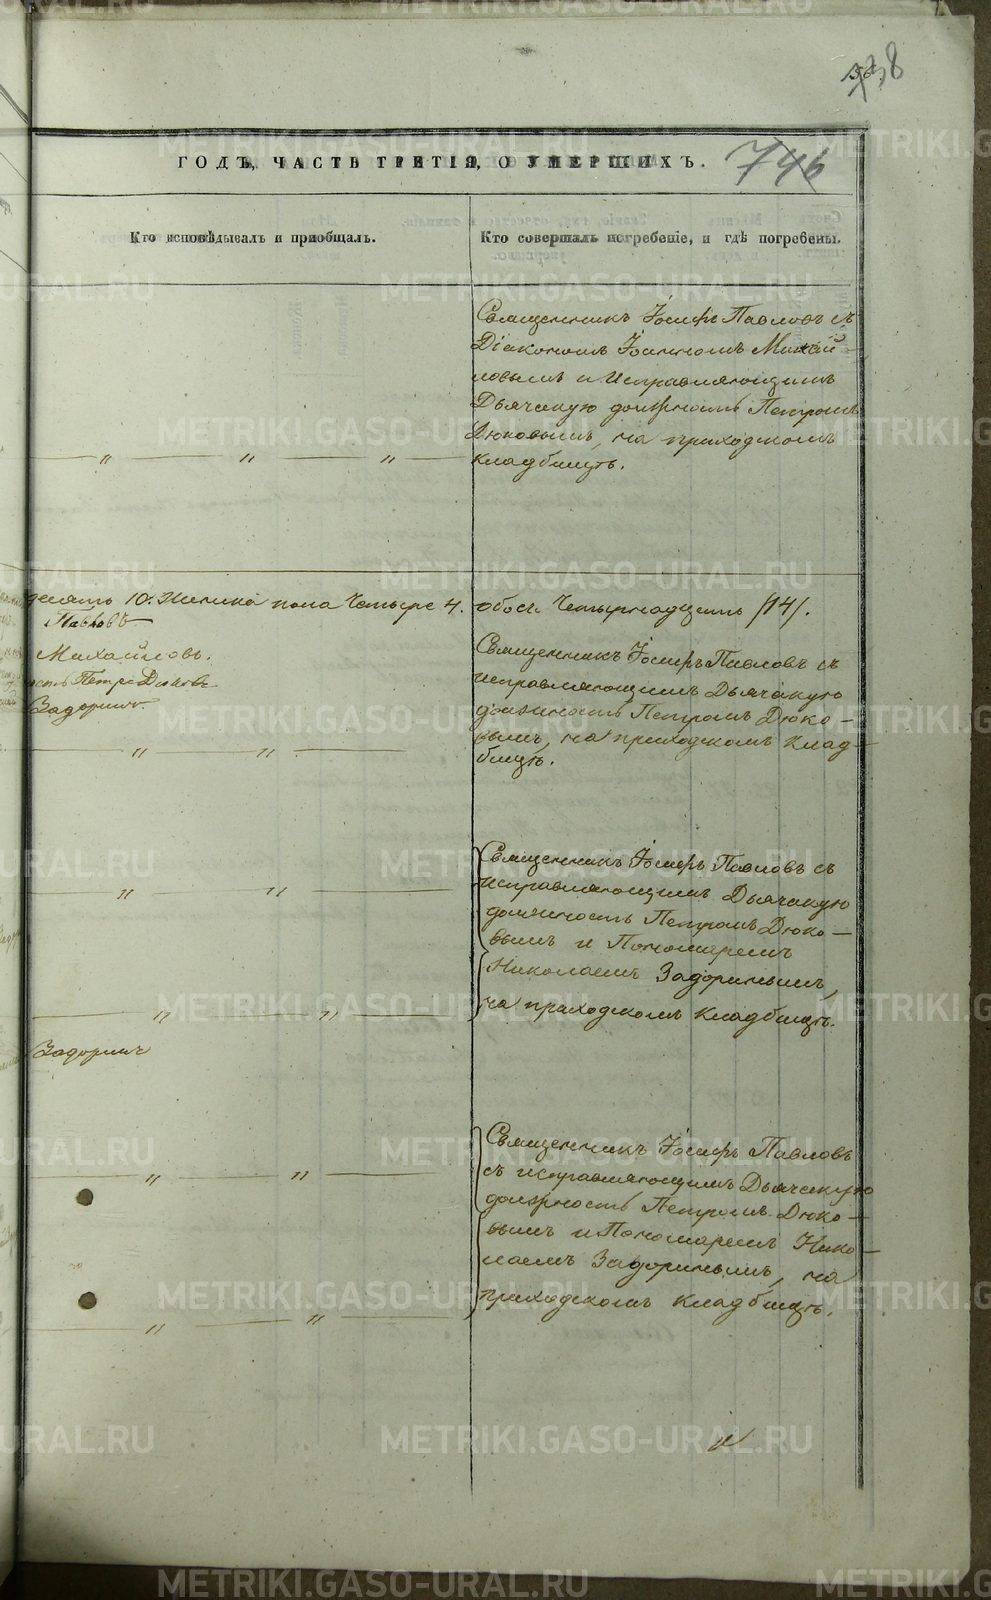 738
ГОДЪ, ЧАСТЬ ТРЕТІЯ, О УМЕРШИХЪ.
746
Кто исповѣдывалъ и пріобщалъ.
Кто совершалъ погребеніе, и гдѣ погребены.
Священникъ Іосифъ Павловъ съ
Діакономъ Іоанномъ Михай-
ловымъ и Исправляющимъ
Дьячекую должность Петромъ
Дюковымъ, на приходскомъ
кладбищѣ.
десять 10. Женска пола Четыре 4. обоего Четырнадцать /14/.
Павловъ
Михайловъ.
Петръ Дюковъ
Задоринъ
Священникъ Іосифъ Павловъ съ
исправляющимъ Дьячекую
должность Петромъ Дюко-
вымъ, на приходскомъ клад-
бищѣ.
Священникъ Іосифъ Павловъ съ
исправляющимъ Дьячекую
должность Петромъ Дюко-
вымъ и Пономаремъ
Николаемъ Задоринымъ,
на приходскомъ кладбищѣ.
Задоринъ
Священникъ Іосифъ Павловъ
съ исправляющимъ Дьячекую
должность Петромъ Дюко-
вымъ и Пономаремъ Нико-
лаемъ Задоринымъ, на
приходскомъ кладбищѣ.
METRIKI.GASO-URAL.RU